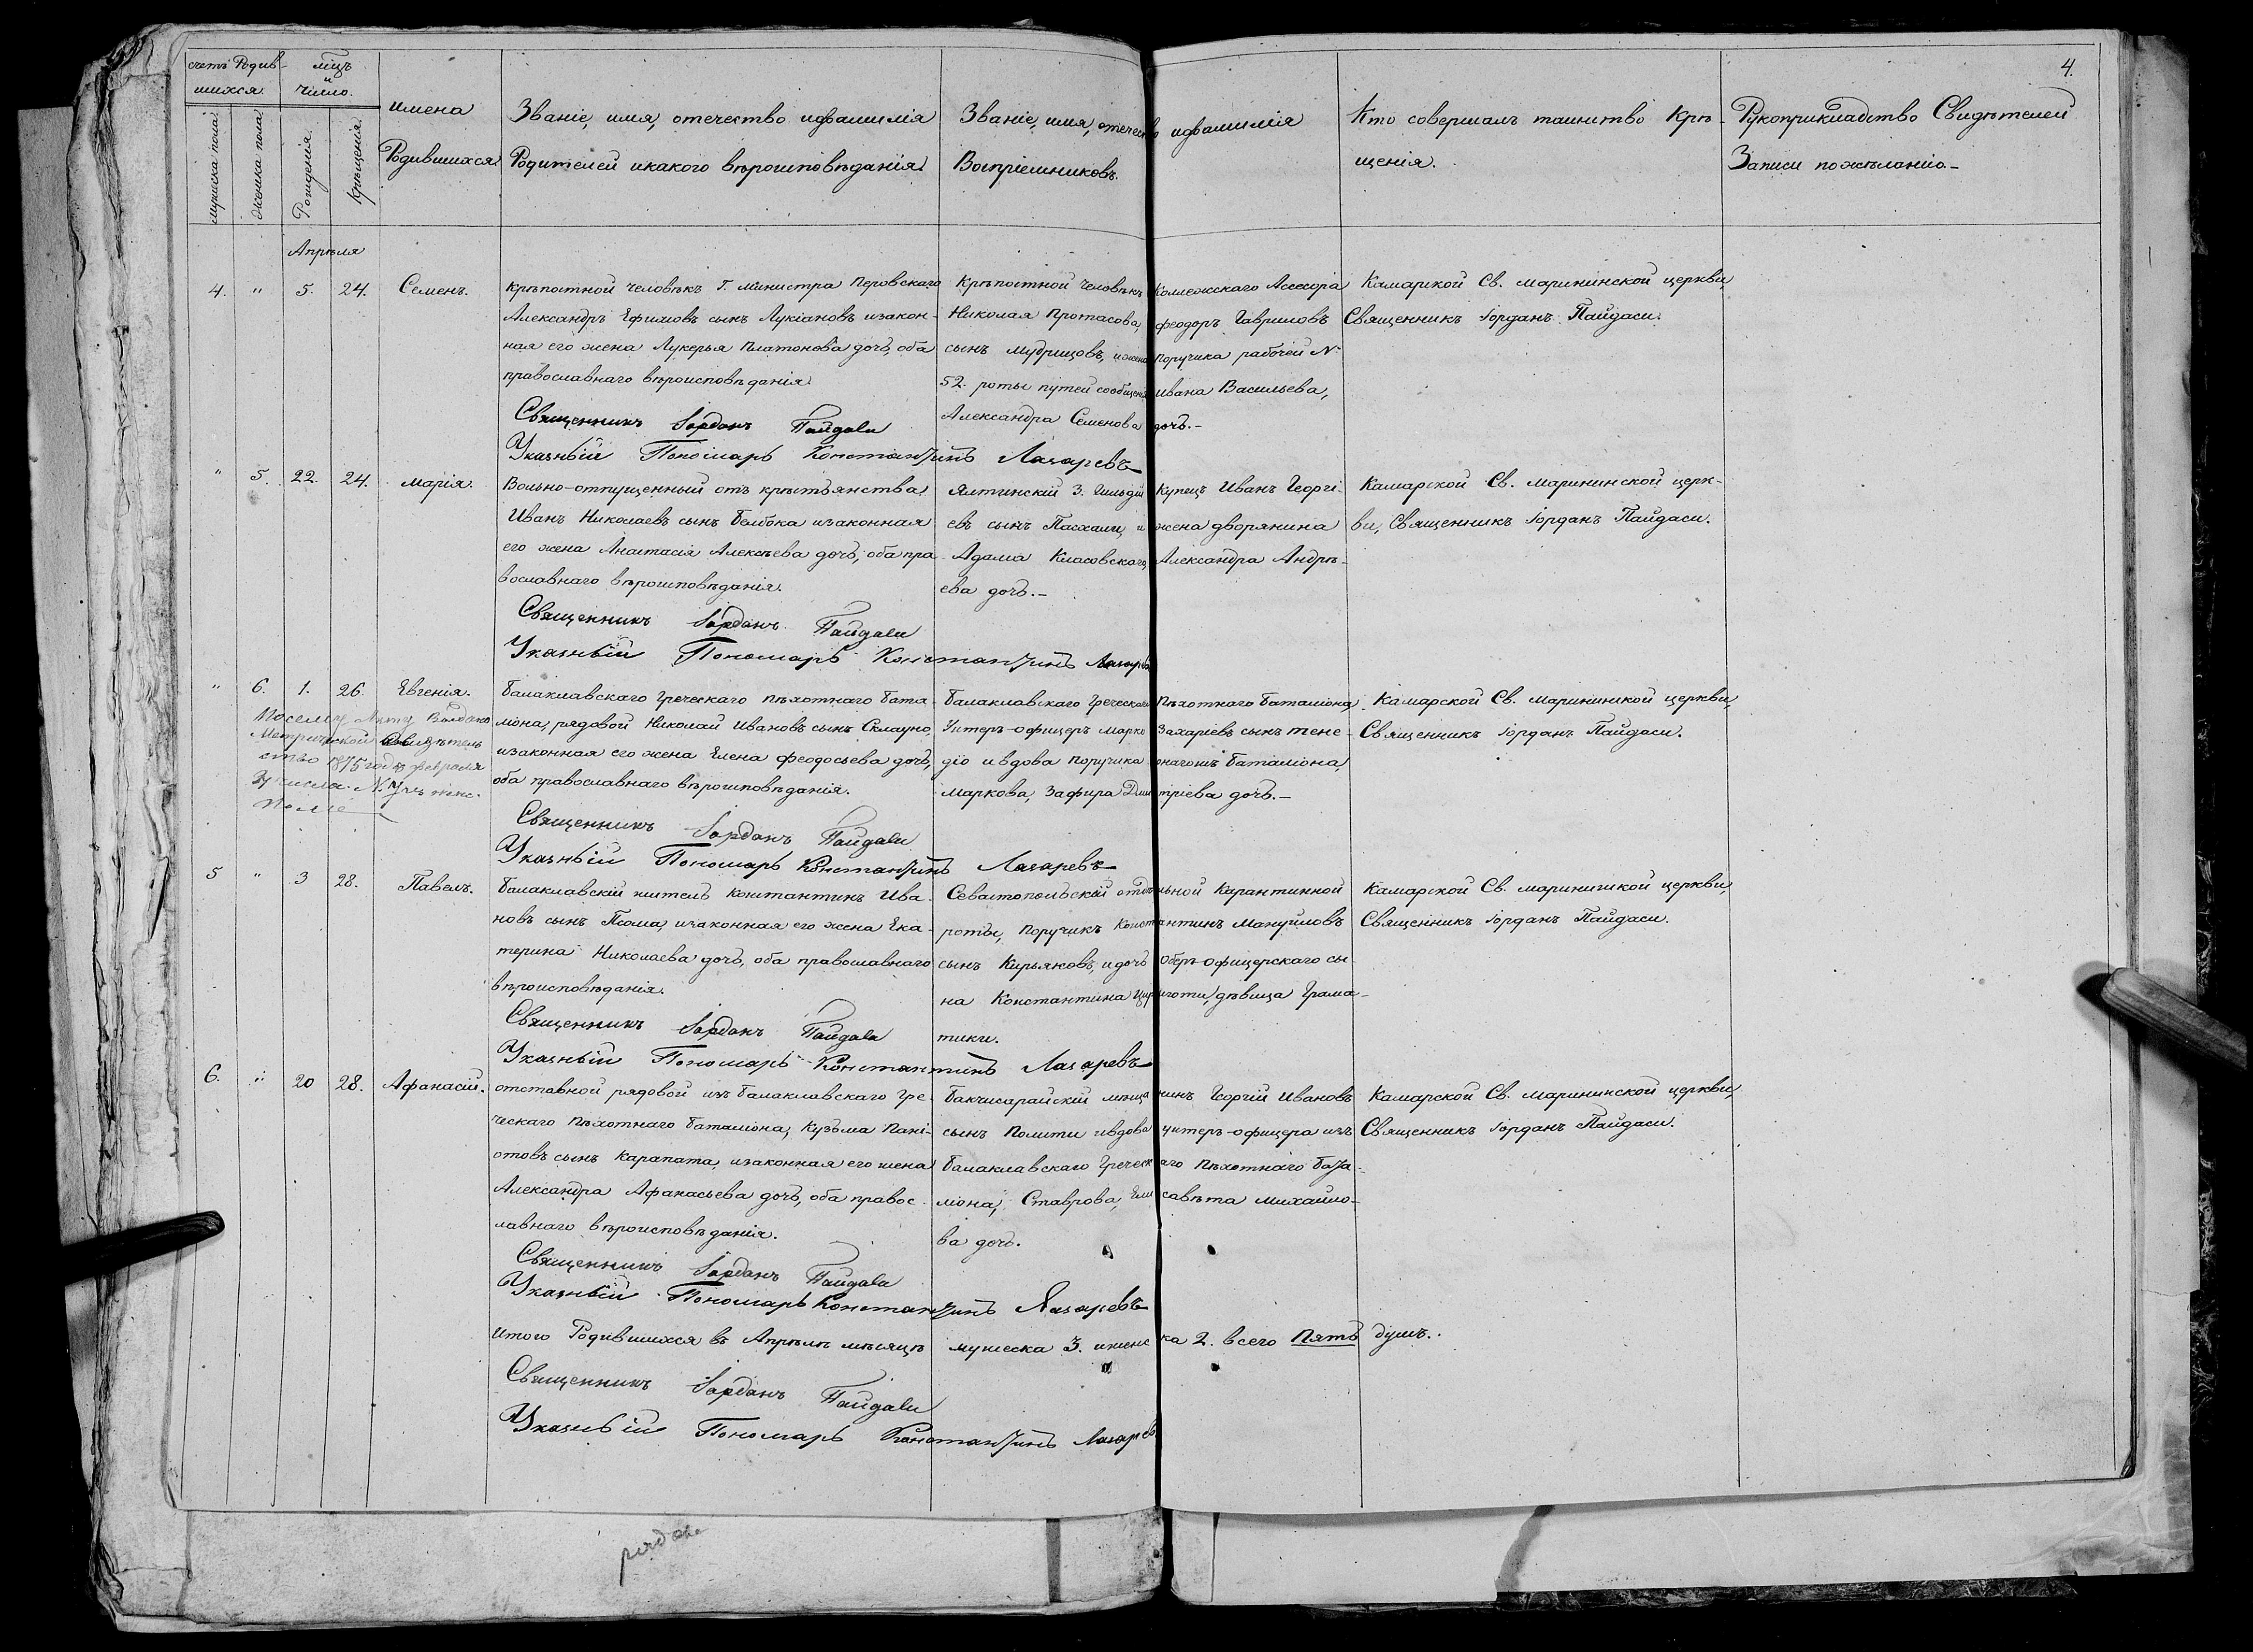 4.
счетъ Родив-
шихся.
мужеска пола
женска пола
мѣцъ
и
число.
Рожденія.
Крещенія.
имена
Родившихся
Званіе, имя, отечество ифамилія
Родителей икакого вѣроисповѣданія
Званіе, имя, отечество ифамилія
Воспріемниковъ.
Кто совершалъ таинство Кре-
щенія.
Рукоприкладство Свидѣтелей
Записи пожѣланію.-
Апрѣля
4. " 5. 24. Семенъ.
крѣпостной человѣкъ Г. министра Перовскаго
Александръ Ефимовъ сынъ Лукіановъ изакон-
ная его жена Лукерья Платонова дочь, оба
православнаго вѣроисповѣданія
Крѣпостной человѣкъ Коллежскаго Асесора
Николая Протасова, феодоръ Гавриловъ
сынъ Мудрицовъ, ижена поручика рабочей №
52. роты путей сообщенія ивана Васильева,
Александра Семенова дочь.-
Камарской Св. маринин­ской церкви,
Священникъ Іорданъ Пайдаси.
Священникъ Іорданъ Пайдаси
Указный Пономарь Константинъ Лазаревъ
" 5. 22. 24. Марія.
Вольно-отпущенный отъ крестьянства
Иванъ Николаевъ сынъ Белбока изаконная
его жена Анастасія Алексѣева дочь, оба пра-
вославнаго вѣроисповѣданія.
Ялтинскій 3. Гильдіи Купецъ Иванъ Георгі-
евъ сынъ Пасхали, и жена дворянина
Адама Класовскаго, Александра Андрѣ-
ева дочь.-
Камарской Св. марининской церк-
ви, Священникъ Іорданъ Пайдаси.
Священникъ Іорданъ Пайдаси
Указный Пономарь Константинъ Лазаревъ
" 6. 1. 26. Евгенія.
балаклавскаго греческаго пѣхотнаго бата-
ліона, рядовой Николай Ивановъ сынъ
изаконная его жена Елена феодосьева дочь,
оба православнаго вѣроисповѣданія.
балаклавскаго Греческаго Пѣхотнаго баталіона
Унтеръ-офицеръ Марко Захаріевъ сынъ тене-
діо ивдова поручика онагожъ баталіона,
Маркова, Зафира Дмитріева дочь.-
Камарской Св. марининской церкви,
Священникъ Іорданъ Пайдаси.
Посему Акту Выдано
Метрической Свидѣтель
ство 1875 года февраля
числа №
Священникъ Іорданъ Пайдаси
Указный Пономарь Константинъ Лазаревъ
5 " 3 28. Павелъ.
балаклавскій житель константинъ Ива-
новъ сынъ Псома, изаконная его жена Ека-
терина Николаева дочь, оба православнаго
вѣроисповѣданія.
Севастопольскій отдѣльной карантинной
роты, поручикъ Константинъ Мануйловъ
сынъ Кирьяковъ, идочь Оберъ-офицерскаго сы-
на Константина Цириготи, дѣвица Грама-
тики.
Камарской Св. марининской церкви,
Священникъ Іорданъ Пайдаси.
Священникъ Іорданъ Пайдаси
Указный Пономарь Константинъ Лазаревъ
6. " 20 28. Афанасій.
отставной рядовой изъ балаклавскаго гре-
ческаго пѣхотнаго баталіона, Кузьма пані-
отовъ сынъ Карапата, изаконная его жена
Александра Афанасьева дочь, оба правос-
лавнаго вѣроисповѣданія.
бакчисарайскій мѣщанинъ Георгій Ивановъ
сынъ Полити ивдова унтеръ-офицера изъ
балаклавскаго Греческаго Пѣхотнаго бата-
ліона, Ставрова, Елисавета Михайло-
ва дочь.
Камарской Св. марининской церкви,
Священникъ Іорданъ Пайдаси.
Священникъ Іорданъ Пайдаси
Указный Пономарь Константинъ Лазаревъ
итого Родившихся въ Апрѣлѣ мѣсяцѣ мужеска 3. иженска 2. всего пять душъ.
Священникъ Іорданъ Пайдаси
Указный Пономарь Константинъ Лазаревъ